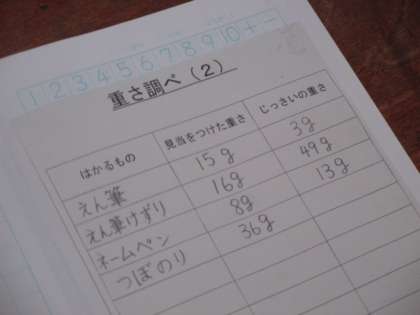 1 2 3 4 5 6 7 8 9 10 + −
重さ調べ（2）
はかるもの 見当をつけた重さ じっさいの重さ
えん筆 15g 3g
えん筆けずり 16g 49g
ネームペン 8g 13g
つぼのり 36g